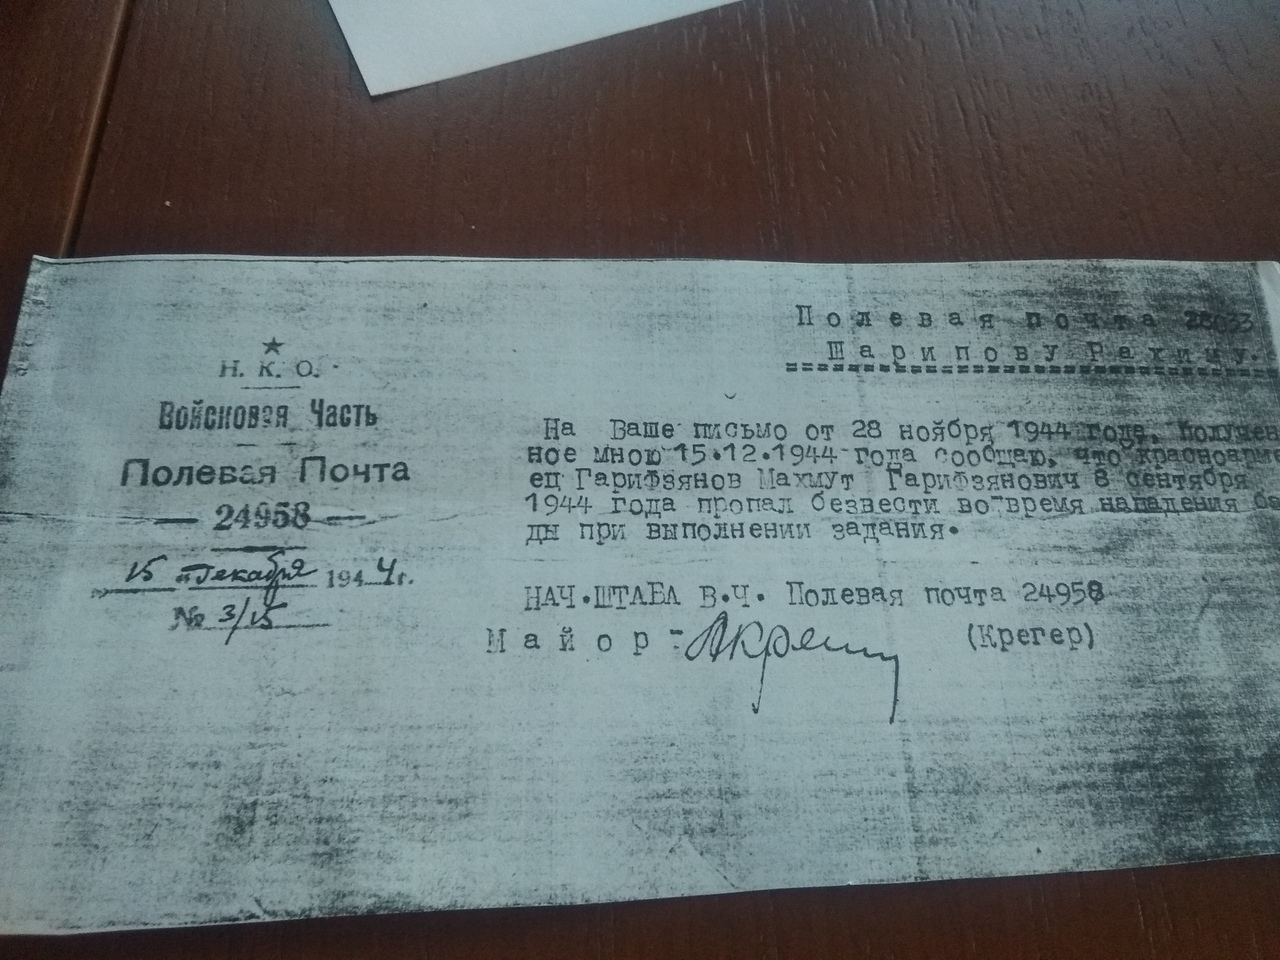 Н. К. О.
Войсковая Часть
Полевая Почта
— 24958 —
15 "Декабря 1944 г.
№ 3/15
Полевая почта 28033
Шарипову Рахиму.
На Ваше письмо от 28 ноября 1944 года, получен
ное мною 15.12.1944 года сообщаю, что красноарме
ец Гарифзянов Махмут Гарифзянович 8 сентября
1944 года пропал безвести во-время нападения ба
ды при выполнении задания.
НАЧ.ШТАБА В.Ч. Полевая почта 24958
Майор:- (Крегер)